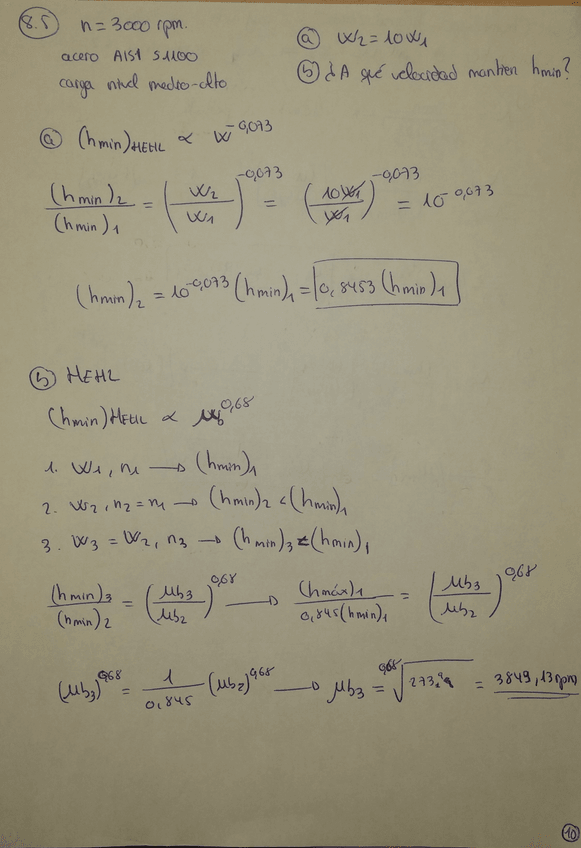 8.5 n = 3000 rpm.
acero AISI 51100
carga nivel medio-alto
a W2 = 10W1
b ¿A qué velocidad mantien hmin?
a (hmin)HEHL ∝ W^-0,073
(hmin)2 / (hmin)1 = (W2 / W1)^-0,073 = (10W1 / W1)^-0,073 = 10^-0,073
(hmin)2 = 10^-0,073 (hmin)1 = 0,8453 (hmin)1
b HEHL
(hmin)HEHL ∝ μb^0,68
1. W1, n1 → (hmin)1
2. W2, n2 = n1 → (hmin)2 < (hmin)1
3. W3 = W2, n3 → (hmin)3 = (hmin)1
(hmin)3 / (hmin)2 = (μb3 / μb2)^0,68 → (hmáx)1 / 0,845(hmin)1 = (μb3 / μb2)^0,68
(μb3)^0,68 = 1 / 0,845 (μb2)^0,68 → μb3 = 0,68√ = 3849,13 rpm
10